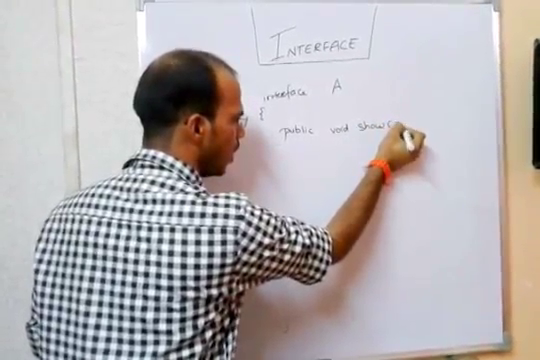 INTERFACE
interface A
{
public void show(